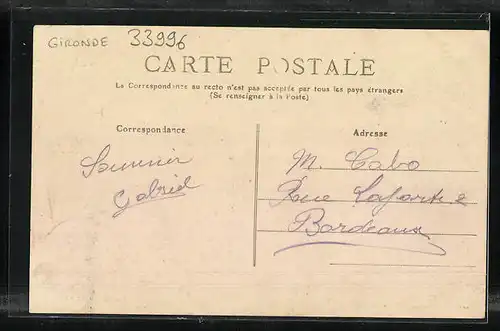 GIRONDE 33996
CARTE POSTALE
La Correspondance au recto n'est pas acceptée par tous les pays étrangers
(Se renseigner à la Poste)
Correspondance
Souvenir
Gabriel
Adresse
M. Cabo
Rue Laporte
Bordeaux